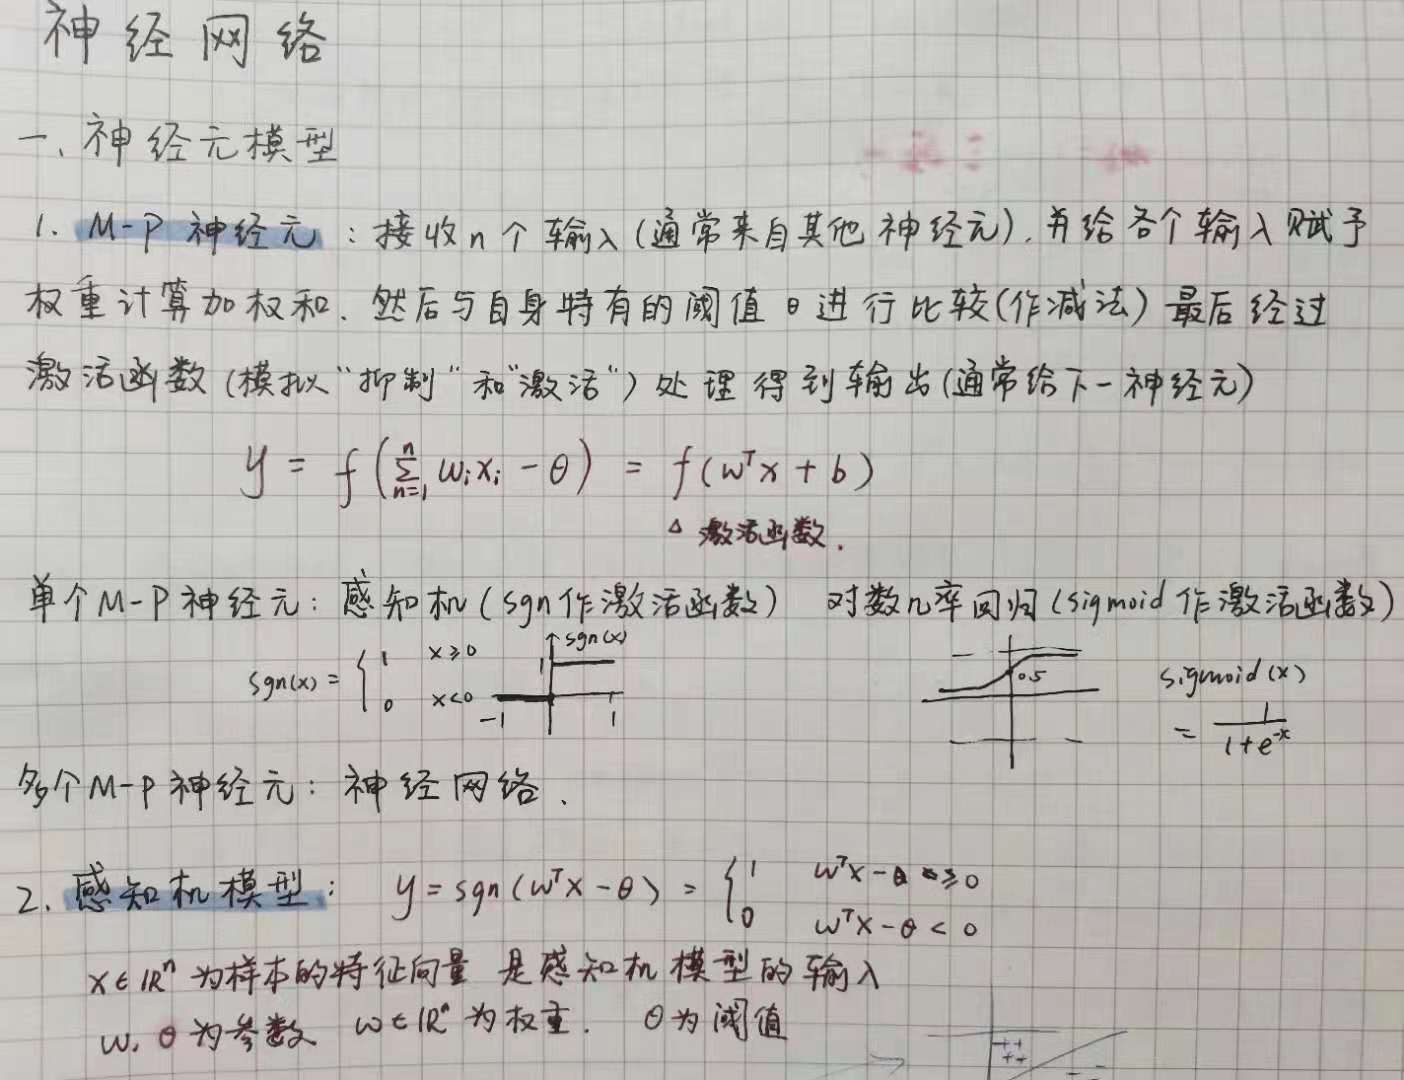 神经网络
一、神经元模型
1. M-P 神经元：接收n个输入(通常来自其他神经元)，并给各个输入赋予
权重计算加权和．然后与自身特有的阈值θ进行比较(作减法)最后经过
激活函数(模拟“抑制”和“激活”)处理得到输出(通常给下一神经元)
y = f(∑ⁿₙ₌₁ wᵢxᵢ - θ) = f(wᵀx + b)
△ 激活函数．
单个M-P神经元：感知机(sgn作激活函数) 对数几率回归(sigmoid作激活函数)
sgn(x) = { 1 x≥0
0 x<0
sgn(x)
1
-1 1
0.5
sigmoid(x)
= 1/(1+e⁻ˣ)
多个M-P神经元：神经网络．
2. 感知机模型： y = sgn(wᵀx - θ) = { 1 wᵀx - θ ≥0
0 wᵀx - θ < 0
x∈ℝⁿ为样本的特征向量 是感知机模型的输入
w, θ为参数 w∈ℝⁿ为权重． θ为阈值
++
++